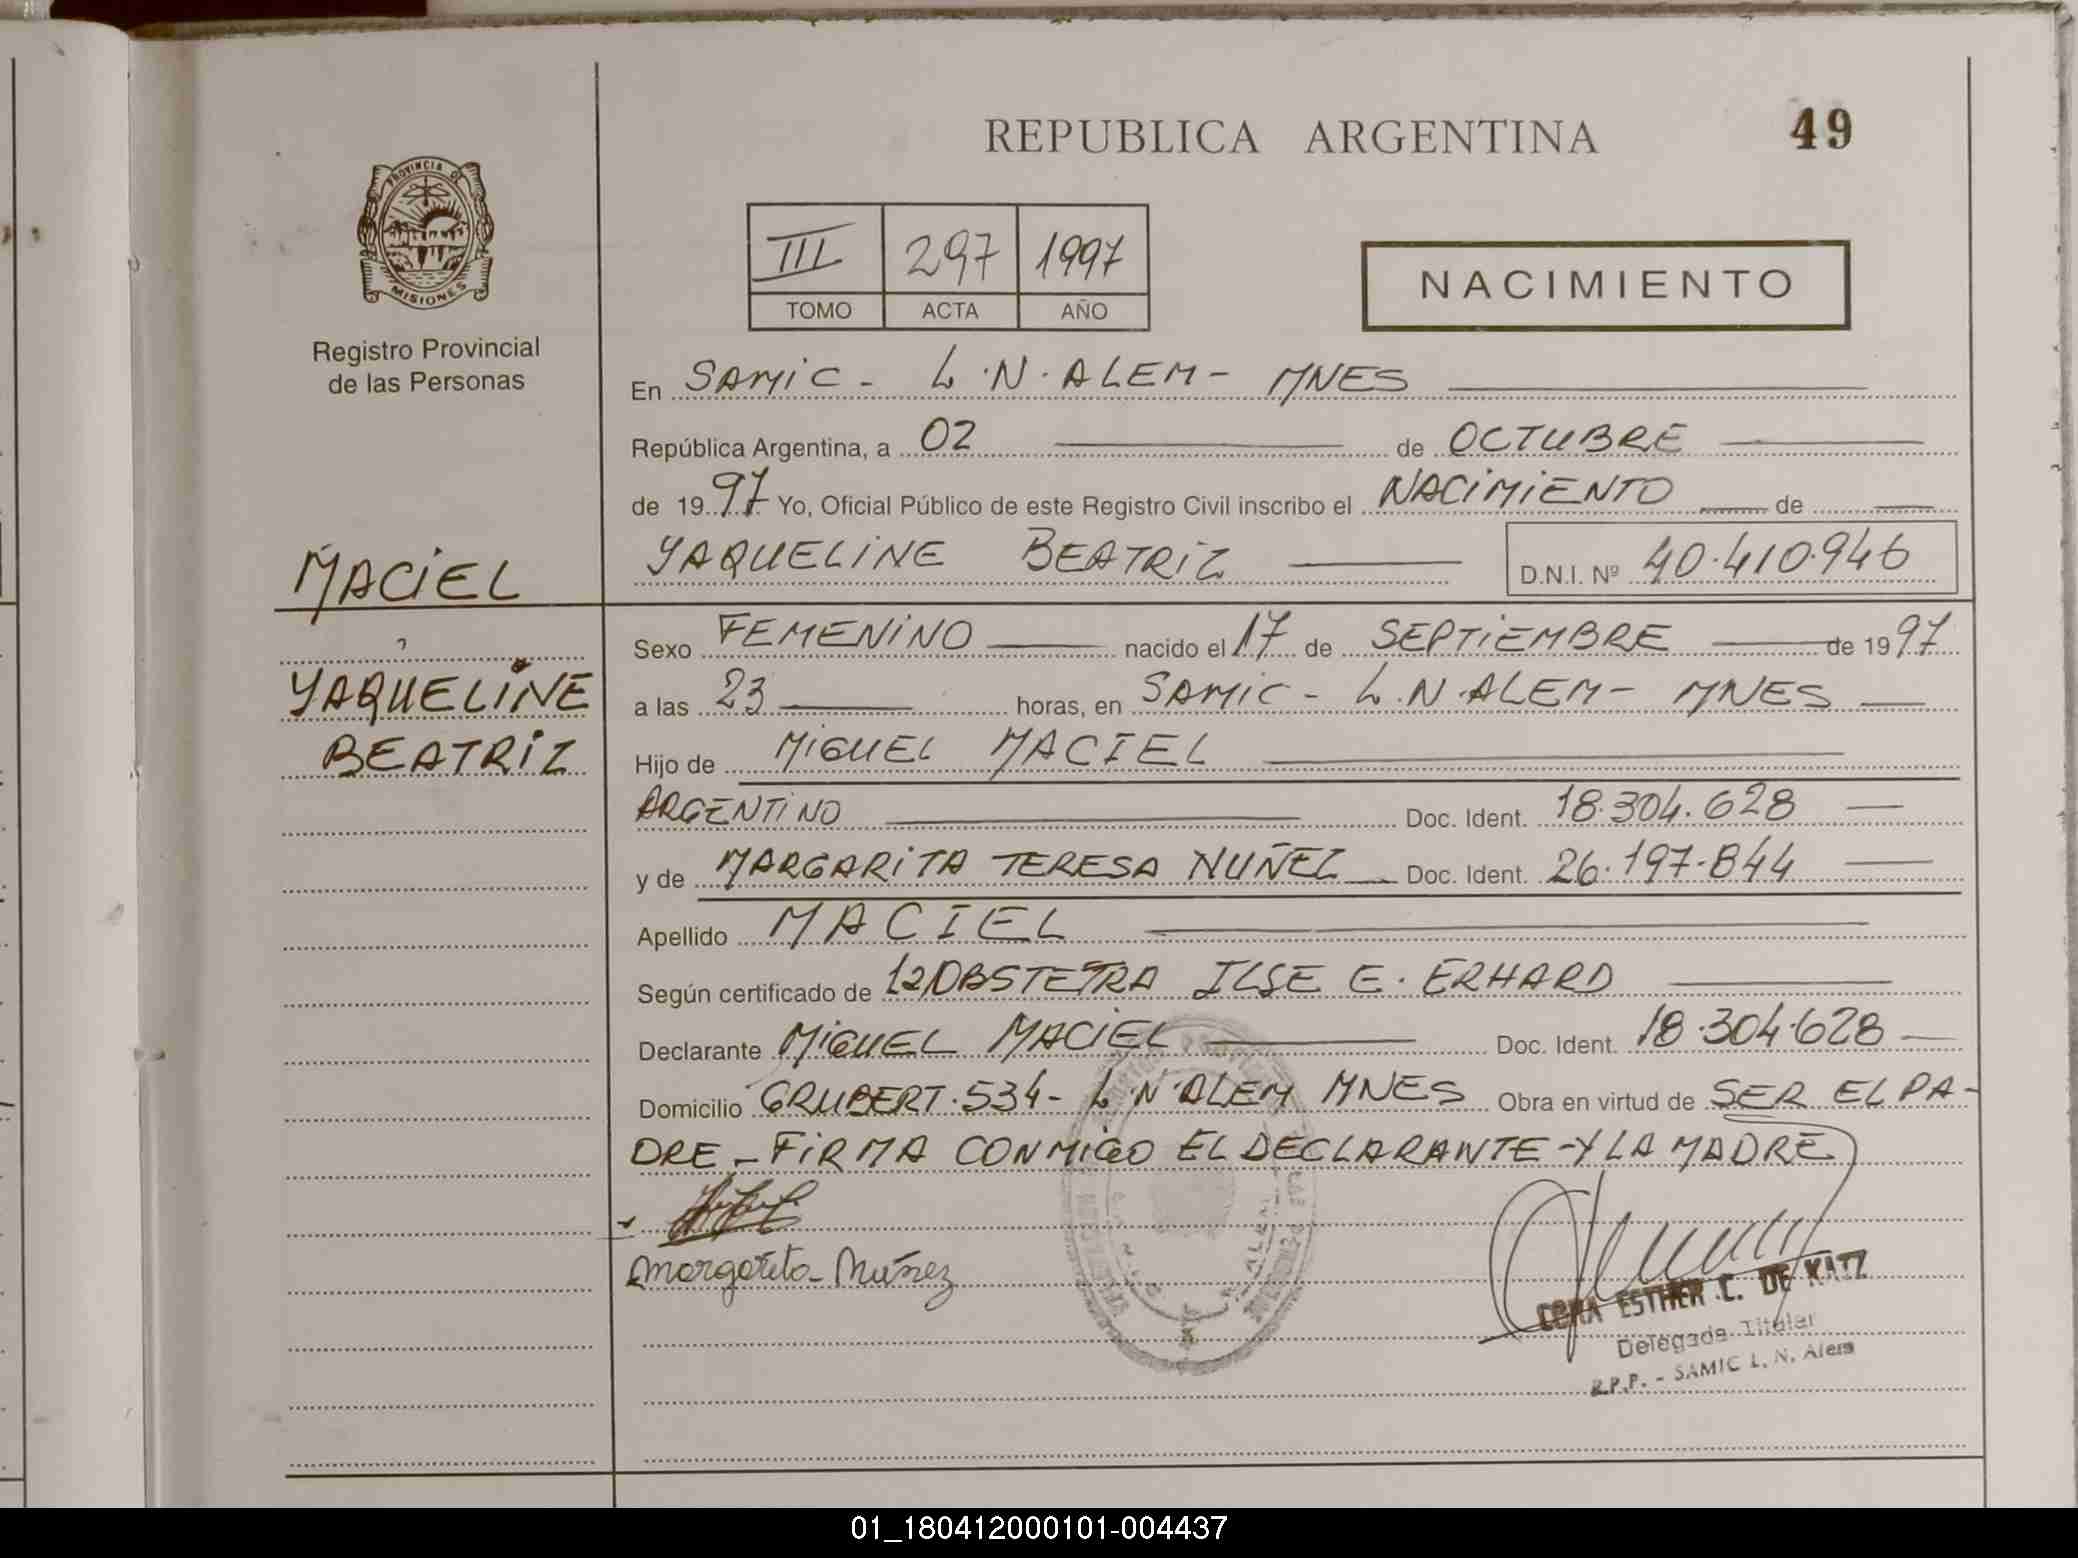 REPUBLICA ARGENTINA
49
PROVINCIA DE
MISIONES
Registro Provincial
de las Personas
III 297 1997
TOMO ACTA AÑO
NACIMIENTO
En SAMIC - L.N. ALEM - MNES
República Argentina, a 02 de OCTUBRE
de 1997 Yo, Oficial Público de este Registro Civil inscribo el NACIMIENTO de
YAQUELINE BEATRIZ D.N.I. Nº 40.410.946
MACIEL
YAQUELINE
BEATRIZ
Sexo FEMENINO nacido el 17 de SEPTIEMBRE de 1997
a las 23 horas, en SAMIC - L.N. ALEM - MNES
Hijo de MIGUEL MACIEL
ARGENTINO Doc. Ident. 18.304.628
y de MARGARITA TERESA NUÑEZ Doc. Ident. 26.197.844
Apellido MACIEL
Según certificado de OBSTETRA ILSE E. ERHARD
Declarante MIGUEL MACIEL Doc. Ident. 18.304.628
Domicilio GRUBERT. 534 - L.N ALEM MNES Obra en virtud de SER EL PA-
DRE - FIRMA CONMIGO EL DECLARANTE - Y LA MADRE
Margarita Núñez
CORA ESTHER C. DE KATZ
Delegada Titular
R.P.P. - SAMIC L. N. Alem
01_180412000101-004437